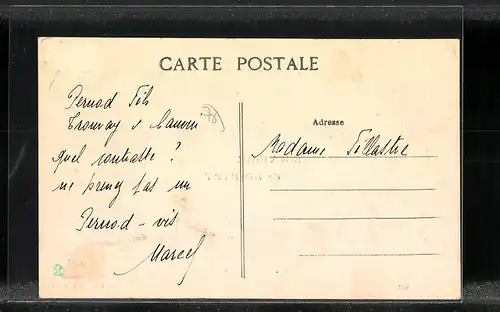 CARTE POSTALE
Pernod Fils
Tronvay s Cauvin
quel contraste ?
ne prenez pas un
Pernod - vis
Marcel
Adresse
Madame Tillastre